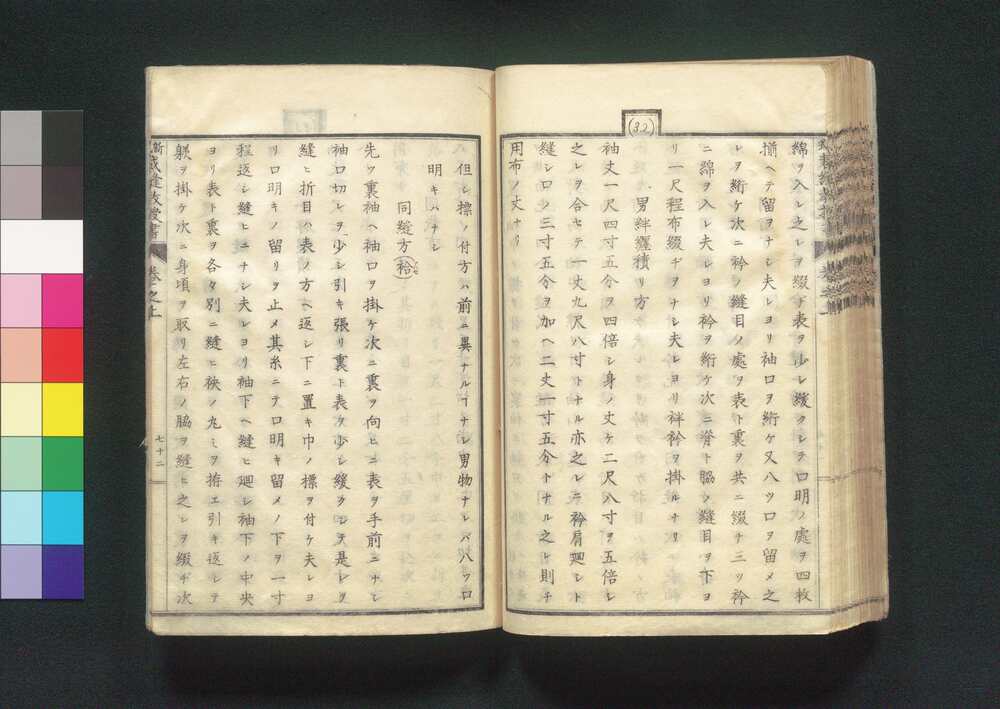 (32)
綿ヲ入レ之レヲ綴ヂ表ヲ少シ緩クシテ口明ノ處ヲ四枚
揃ヘテ留ヲナシ夫レヨリ袖口ヲ絎ケ又八ツ口ヲ留メ之
レヲ絎ケ次ニ衿ノ縫目ノ處ヲ表ト裏ヲ共ニ綴ヂ三ツ衿
ニ綿ヲ入レ夫レヨリ衿ヲ絎ケ次ニ脊ト脇ノ縫目ヲ下ヨ
リ一尺程布綴ヂヲナシ夫レヨリ袢衿ヲ掛ルナリ
男袢纏積リ方
袖丈一尺四寸五分ヲ四倍シ身ノ丈ケ二尺八寸ヲ五倍シ
之レヲ合セテ一丈九尺八寸トナル亦之レニ衿肩廻シト
縫シロノ三寸五分ヲ加ヘ二丈一寸五分トナル之レ則チ
用布ノ丈ナリ
但シ標ノ付方ハ前ニ異ナルヿナシ男物ナレバ八ツ口
明キハナシ
同縫方(袷)
先ツ裏袖ヘ袖口ヲ掛ケ次ニ裏ヲ向ヒニ表ヲ手前ニナシ
袖口切レヲ少シ引キ張リ裏ト表ヲ少シ緩クシテ是レヲ
縫ヒ折目ハ表ノ方ヘ返シ下ニ置キ巾ノ標ヲ付ケ夫レヨ
リ口明キノ留リヲ止メ其糸ニテ口明キ留メノ下ヲ一寸
程返シ縫ヒニナシ夫レヨリ袖下ヘ縫ヒ廻シ袖下ノ中央
ヨリ表ト裏ヲ各々別ニ縫ヒ袂ノ丸ミヲ拵エ引キ返シテ
躾ヲ掛ケ次ニ身頃ヲ取リ左右ノ脇ヲ縫ヒ之レヲ綴ヂ次
裁縫教授書
卷之上
七十二